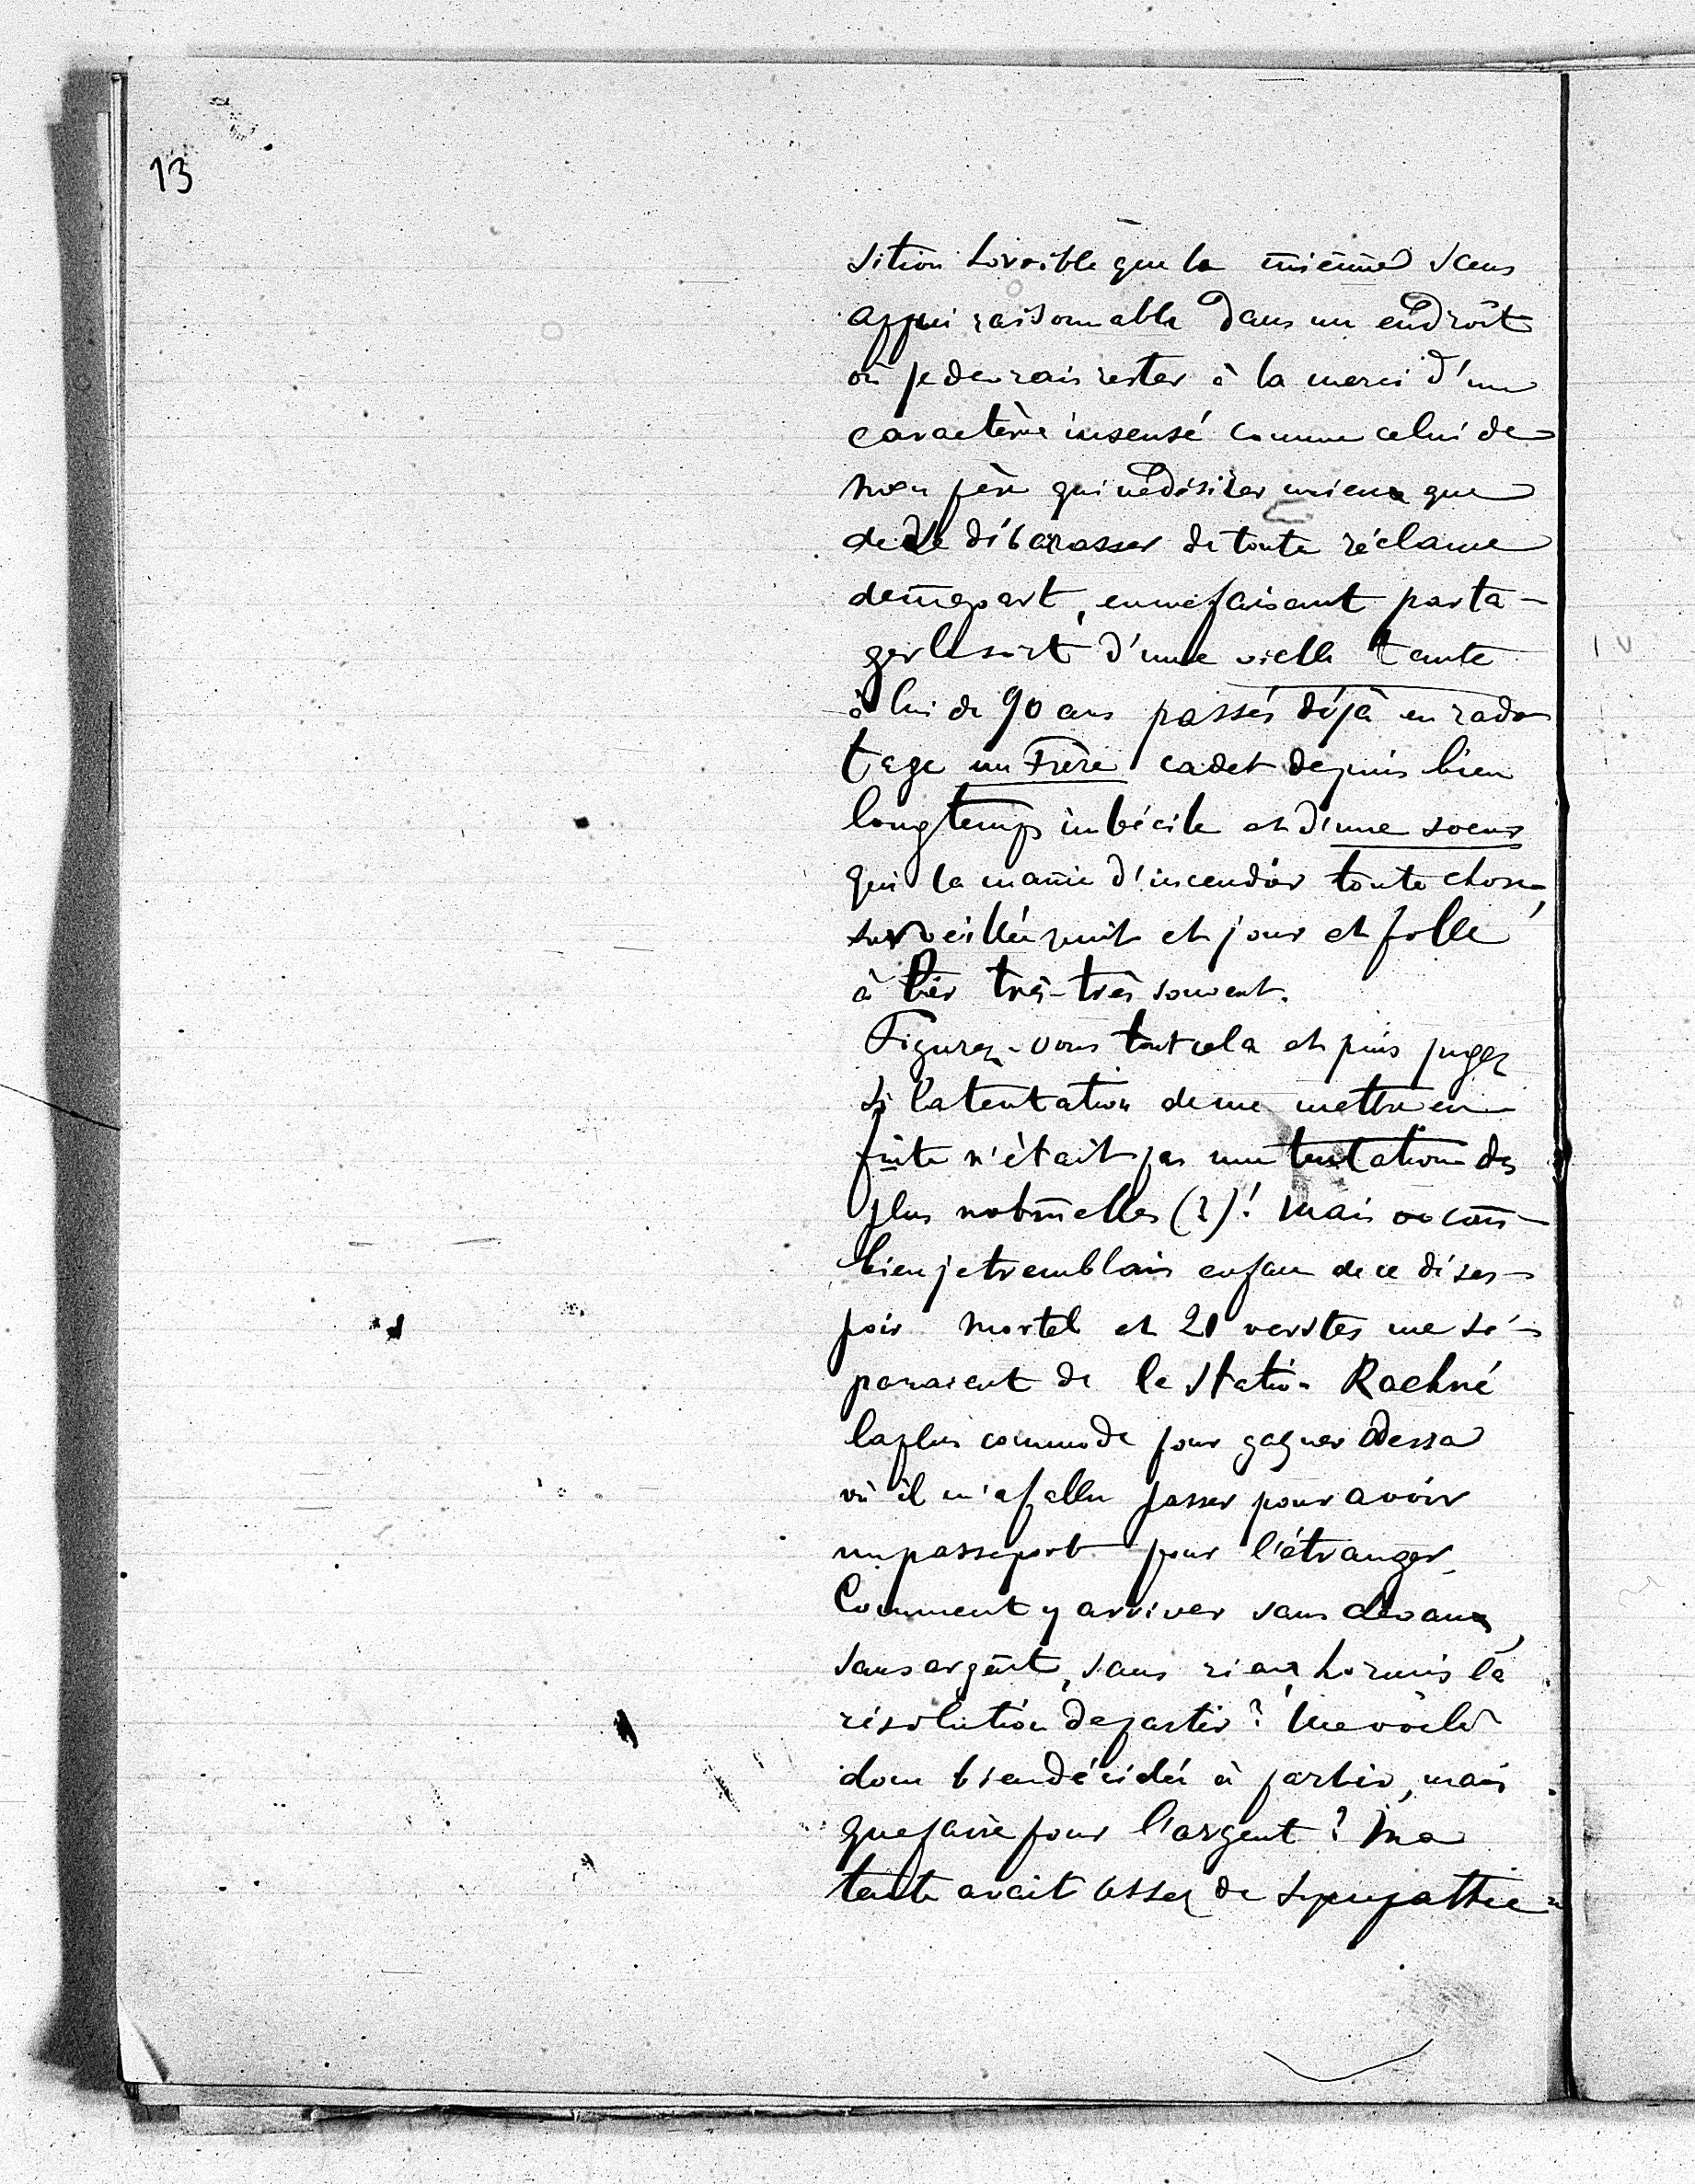 13
sition horrible que la mienne sans
appui raisonnable dans un endroit
où je devrais rester à la merci d'un
caractère insensé comme celui de
mon père qui ne désirer mieux que
de se débarasser de toute réclame
de ma part, en me faisant parta-
ger le sort d'une vielle tante
à lui de 90 ans passés déjà en rado-
tage un Frère cadet depuis bien
longtemps imbécile et d'une soeur
qui la manie d'incendier toute chose,
surveillée nuit et jour et folle
à lier très-très souvent.
Figurez-vous tout cela et puis jugez
si la tentation de me mettre en
fuite n'était pas une tentation des
plus (?)! Mais com-
bien je tremblais enfan de ce déses-
poir mortel et 20 verstes me sé-
paraient de la station Rachné
la plus commode pour gagner Odessa
où il m'a fallu passer pour avoir
un passeport pour l'étranger.
Comment y arriver sans
sans argent, sans rien hormis la
résolution de partir? Me voilà
donc bien décidée à partir, mais
que faire pour l'argent? Ma
tante avait assez de sympathie